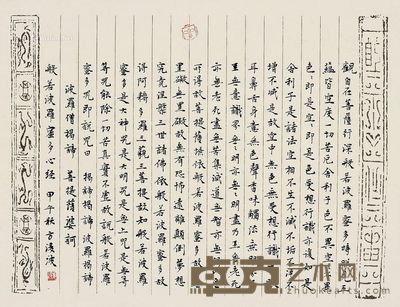 觀自在菩薩行深般若波羅蜜多時照見五
蘊皆空度一切苦厄舍利子色不異空空不異
色色即是空空即是色受想行識亦復如是
舍利子是諸法空相不生不滅不垢不淨不
增不減是故空中無色無受想行識無眼
耳鼻舌身意無色聲香味觸法無眼界乃
至無意識界無無明亦無無明盡乃至無老死
亦無老死盡無苦集滅道無智亦無得以無
所得故菩提薩埵依般若波羅蜜多故心無
罣礙無罣礙故無有恐怖遠離顛倒夢想
究竟涅槃三世諸佛依般若波羅蜜多故
得阿耨多羅三藐三菩提故知般若波羅
蜜多是大神咒是大明咒是無上咒是無等
等咒能除一切苦真實不虛故說般若波羅
蜜多咒即說咒曰 揭諦揭諦 波羅揭諦
波羅僧揭諦 菩提薩婆訶
般若波羅蜜多心經 甲午秋方